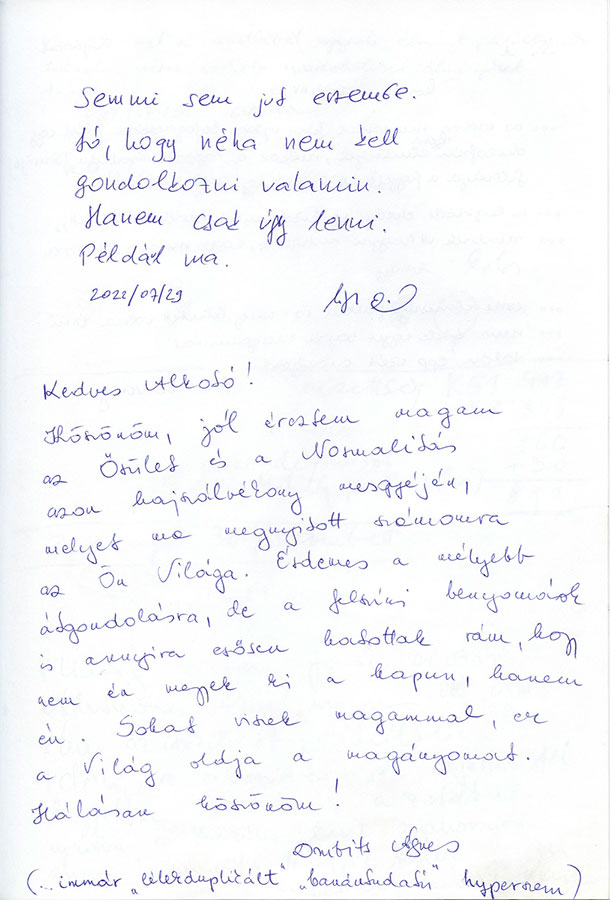 Semmi sem jut eszembe.
Jó, hogy néha nem kell
gondolkozni valamin.
Hanem csak így lenni.
Például ma.
2022/07/29
Kedves Alkotó!
Köszönöm, jól éreztem magam
az Őrület és a Normalitás
azon hajszálvékony mezsgyéjén,
melyet ma megnyitott számomra
az Ön Világa. Érdemes a mélyebb
átgondolásra, de a felszíni benyomások
is annyira erősen hatottak rám, hogy
nem én megyek ki a kapun, hanem
én. Sokat viszek magammal, ez
a Világ oldja a magányomat.
Hálásan köszönöm!
Ágnes
(... immár „lélekduplikált" „banántudatú" hyperszem)